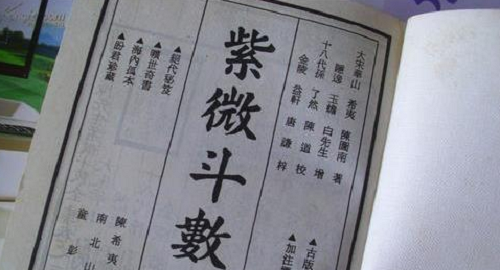 大宋華山 希夷 陳圖南 著
隱逸 玉蟾 白先生 增
十八代孫 了然 陳道 校
金陵 益軒 唐謙 梓
▲古版
▲加注
紫微斗數
▲絕代秘笈
▲曠世奇書
▲海內孤本
▲盼君珍藏
陳希夷
南北山
彭